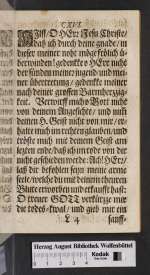 CXVI.
Hilff/ O HErr Jesu Christe/
daß ich durch deine gnade/ in
dieser meiner noht möge frölich ü-
berwinden! gedencke o HErr nicht
der sünden meiner jugend/ und mei-
ner übertretung/ gedencke meiner
nach deiner grossen Barmhertzig-
keit. Verwirff mich o Gott nicht
von deinem Angesichte/ und nim
deinen H. Geist nicht von mir/ er-
halte mich im rechten glauben/ und
tröste mich mit deinem Geist am
letzten ende/ daß ich im tode von dir
nicht geschieden werde: Ach! HErr/
laß dir befohlen seyn meine arme
seele/ welche du mit deinem theuren
Blute erworben und erkaufft hast:
O treuer GOTT verkürtze mir
die todes-quaal/ und gieb mir ein
L 4 sanff-
Herzog August Bibliothek Wolfenbüttel
Kodak